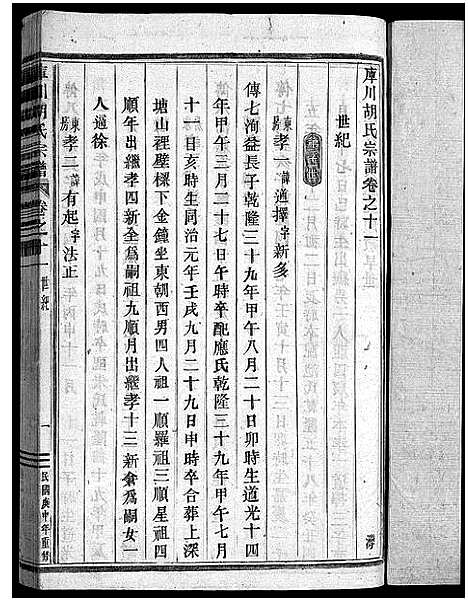 庫川胡氏宗譜卷之十一
世紀
東房孝一諱道擇字新多
傳七洵益長子乾隆三十九年甲午八月二十日卯時生道光十四
年甲午三月二十七日午時卒配應氏乾隆三十九年甲午七月
十一日亥時生同治元年壬戌九月二十九日申時卒合葬上深
塘山裡壁樑下金鐘坐東朝西男四人祖一順羅祖三順星祖四
順年出繼孝四新全為嗣祖九順月出繼孝十三新禽為嗣女一
人適徐
東房孝二諱有起字法正
庫川胡氏宗譜 卷之十一 世紀 一 民國庚申年重修